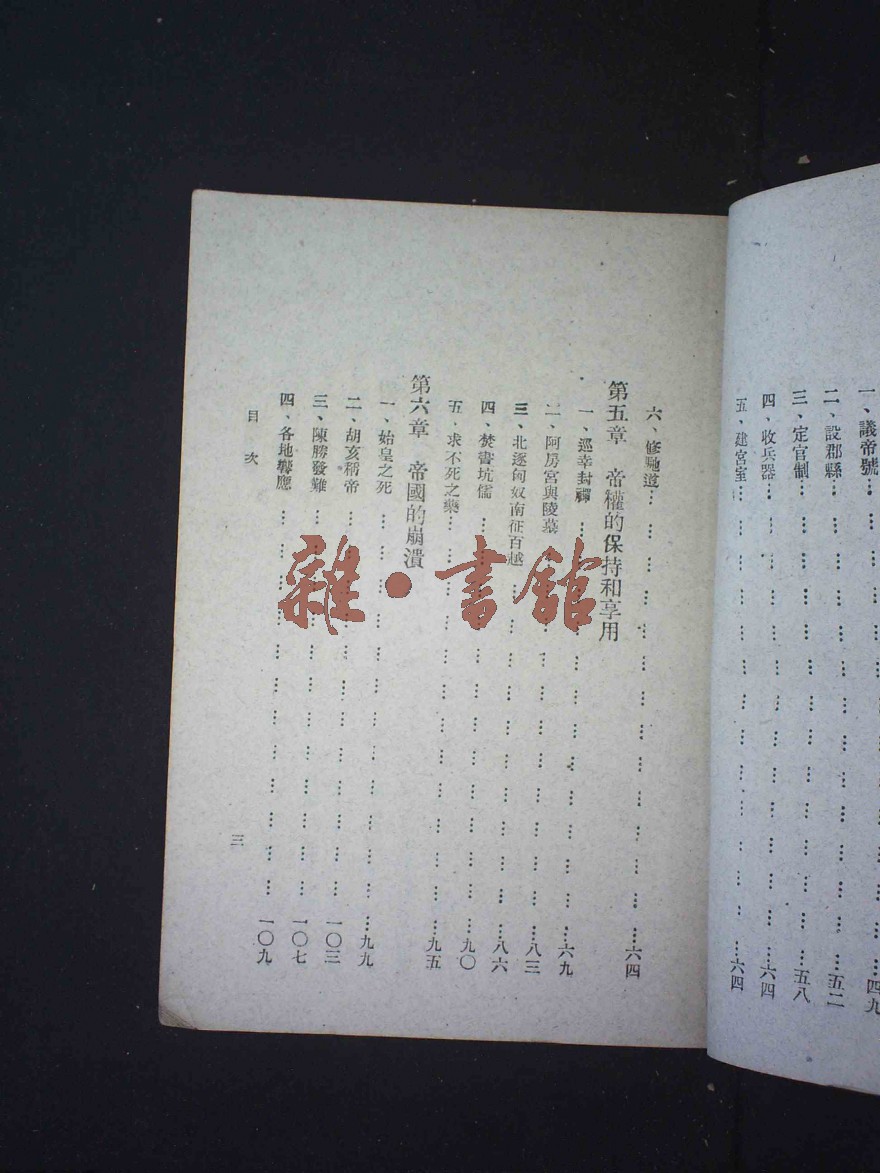 一、議帝號……四九
二、設郡縣……五二
三、定官制……五八
四、收兵器……六四
五、建宮室……六四
六、修馳道……六四
第五章　帝權的保持和享用
一、巡幸封禪……六九
二、阿房宮與陵墓……八三
三、北逐匈奴南征百越……八六
四、焚書坑儒……九〇
五、求不死之藥……九五
第六章　帝國的崩潰
一、始皇之死……九九
二、胡亥稱帝……一〇三
三、陳勝發難……一〇七
四、各地響應……一〇九
目次
三
雜·書館